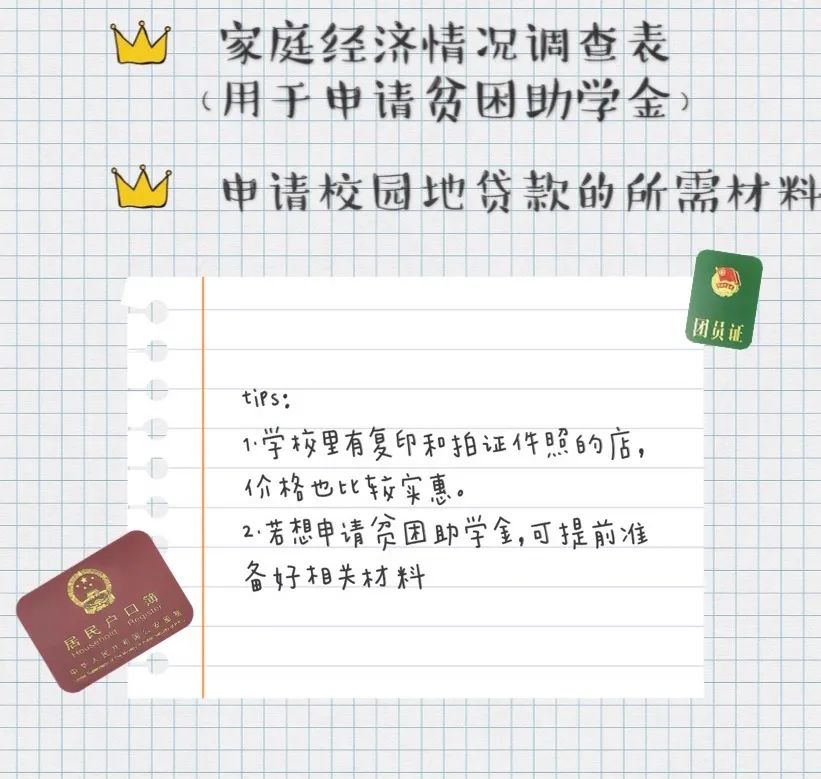 家庭经济情况调查表
（用于申请贫困助学金）
申请校园地贷款的所需材料
团员证
tips:
1.学校里有复印和拍证件照的店,
价格也比较实惠。
2.若想申请贫困助学金,可提前准
备好相关材料
居民户口簿
Household Register